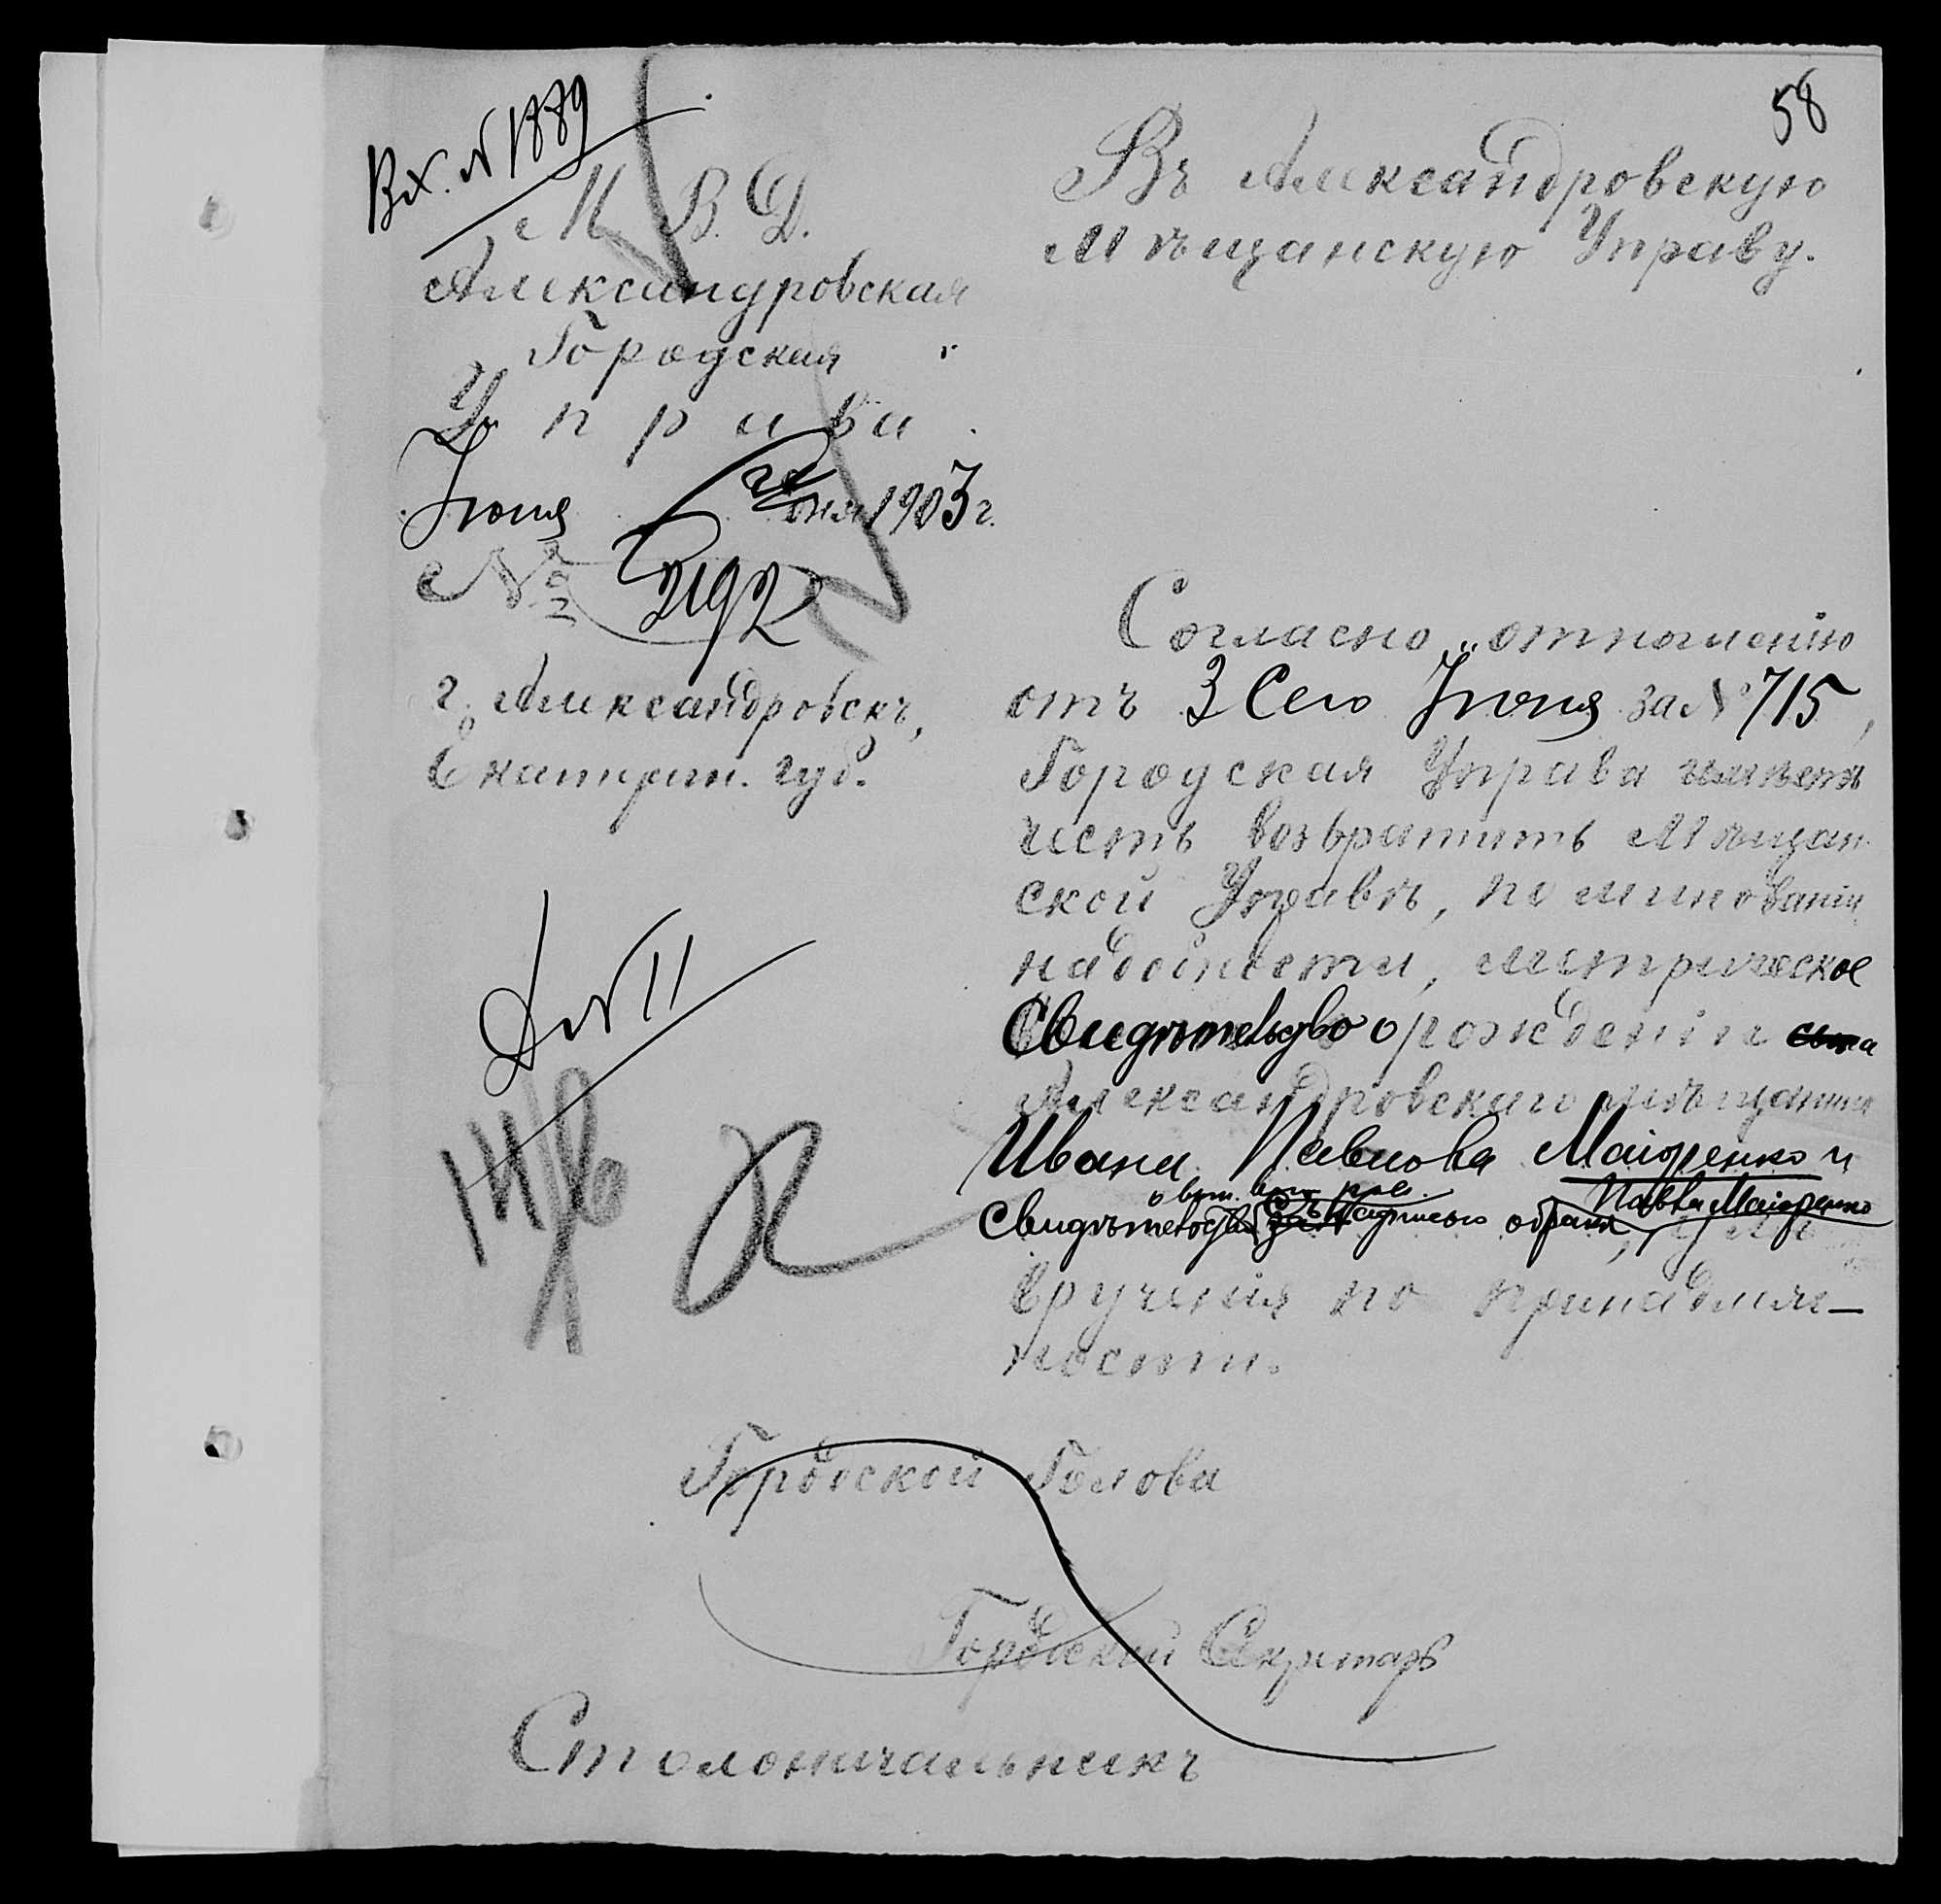 58
Вх. № 1889
М. В. Д.
Александровская
Городская
Управа.
Іюня дня 1903 г.
№ 3192
г. Александровскъ,
Екатерин. губ.
Въ Александровскую
Мѣщанскую Управу.
Согласно отношенію
отъ 3 сего Іюня за № 715,
Городская Управа имѣетъ
честь возвратить Мѣщан-
ской Управѣ, по минованіи
надобности, метрическое
Свидѣтельство о рожденіи сына
Александровскаго мѣщанина
Ивана Павлова Маіоренко и
Свидѣтельство Павла Маіоренко
, для
врученія по принадлеж-
ности.
Д № 11
Городской Голова
Городской Секретарь
Столоначальникъ